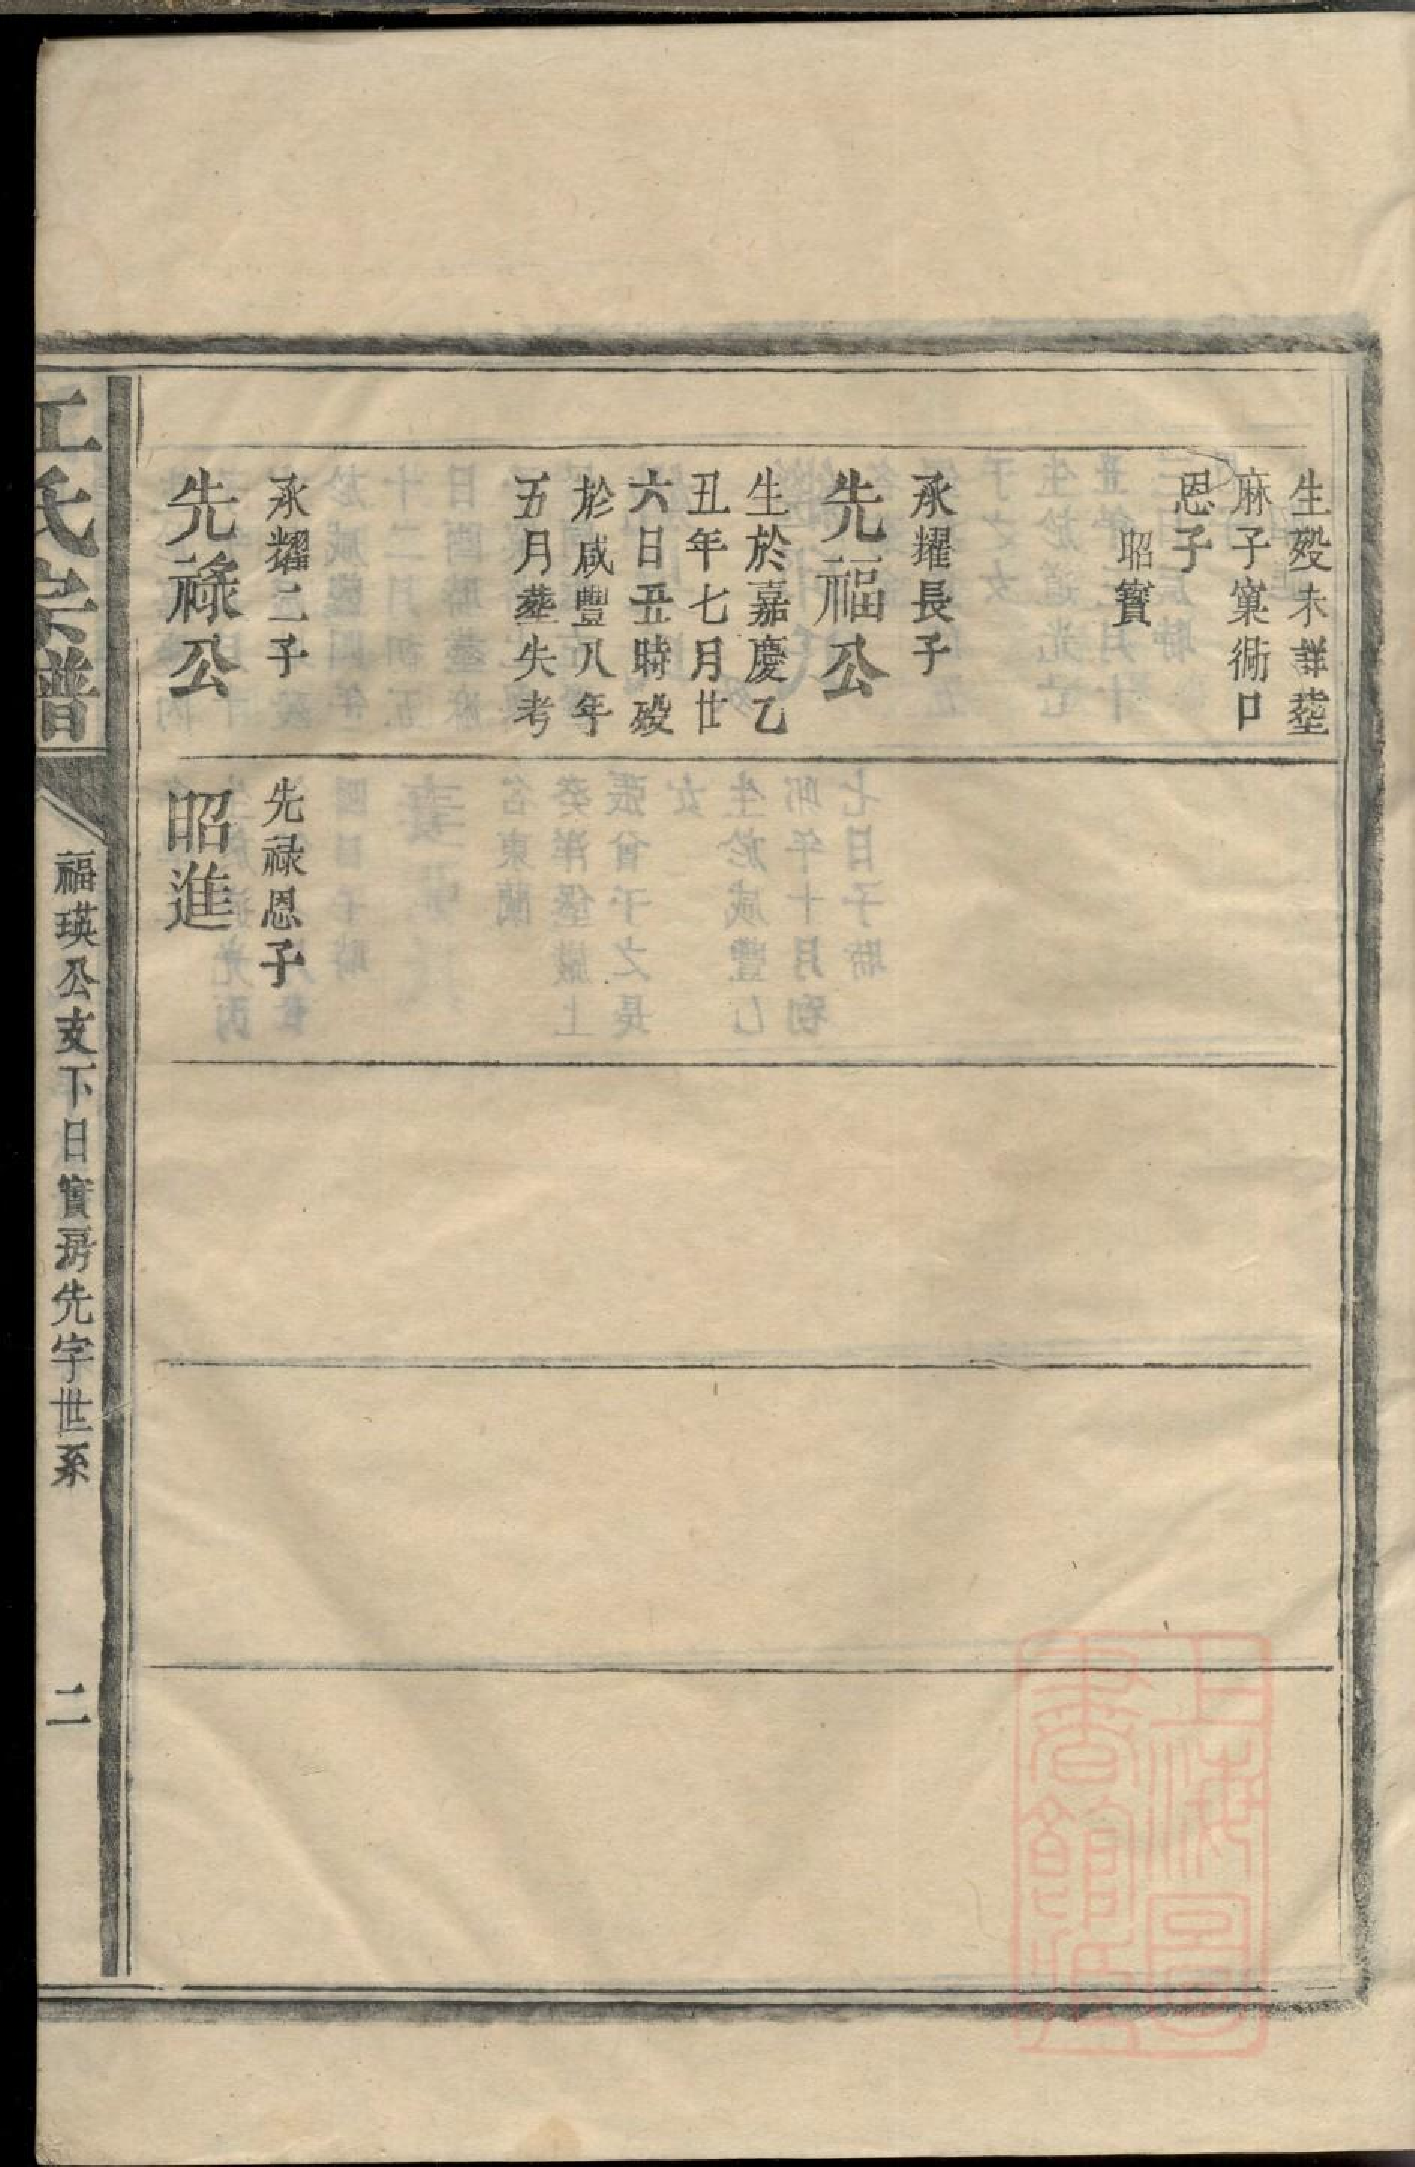 生歿未詳塟
麻子窠衕口
恩子
昭寳
承耀長子
先福公
生於嘉慶乙
丑年七月廿
六日丑時歿
於咸豐八年
五月塟失考
承耀二子
先祿公
先祿恩子
昭進
江氏宗譜
福瑛公支下日實房先字世系
二
上海圖
書館藏